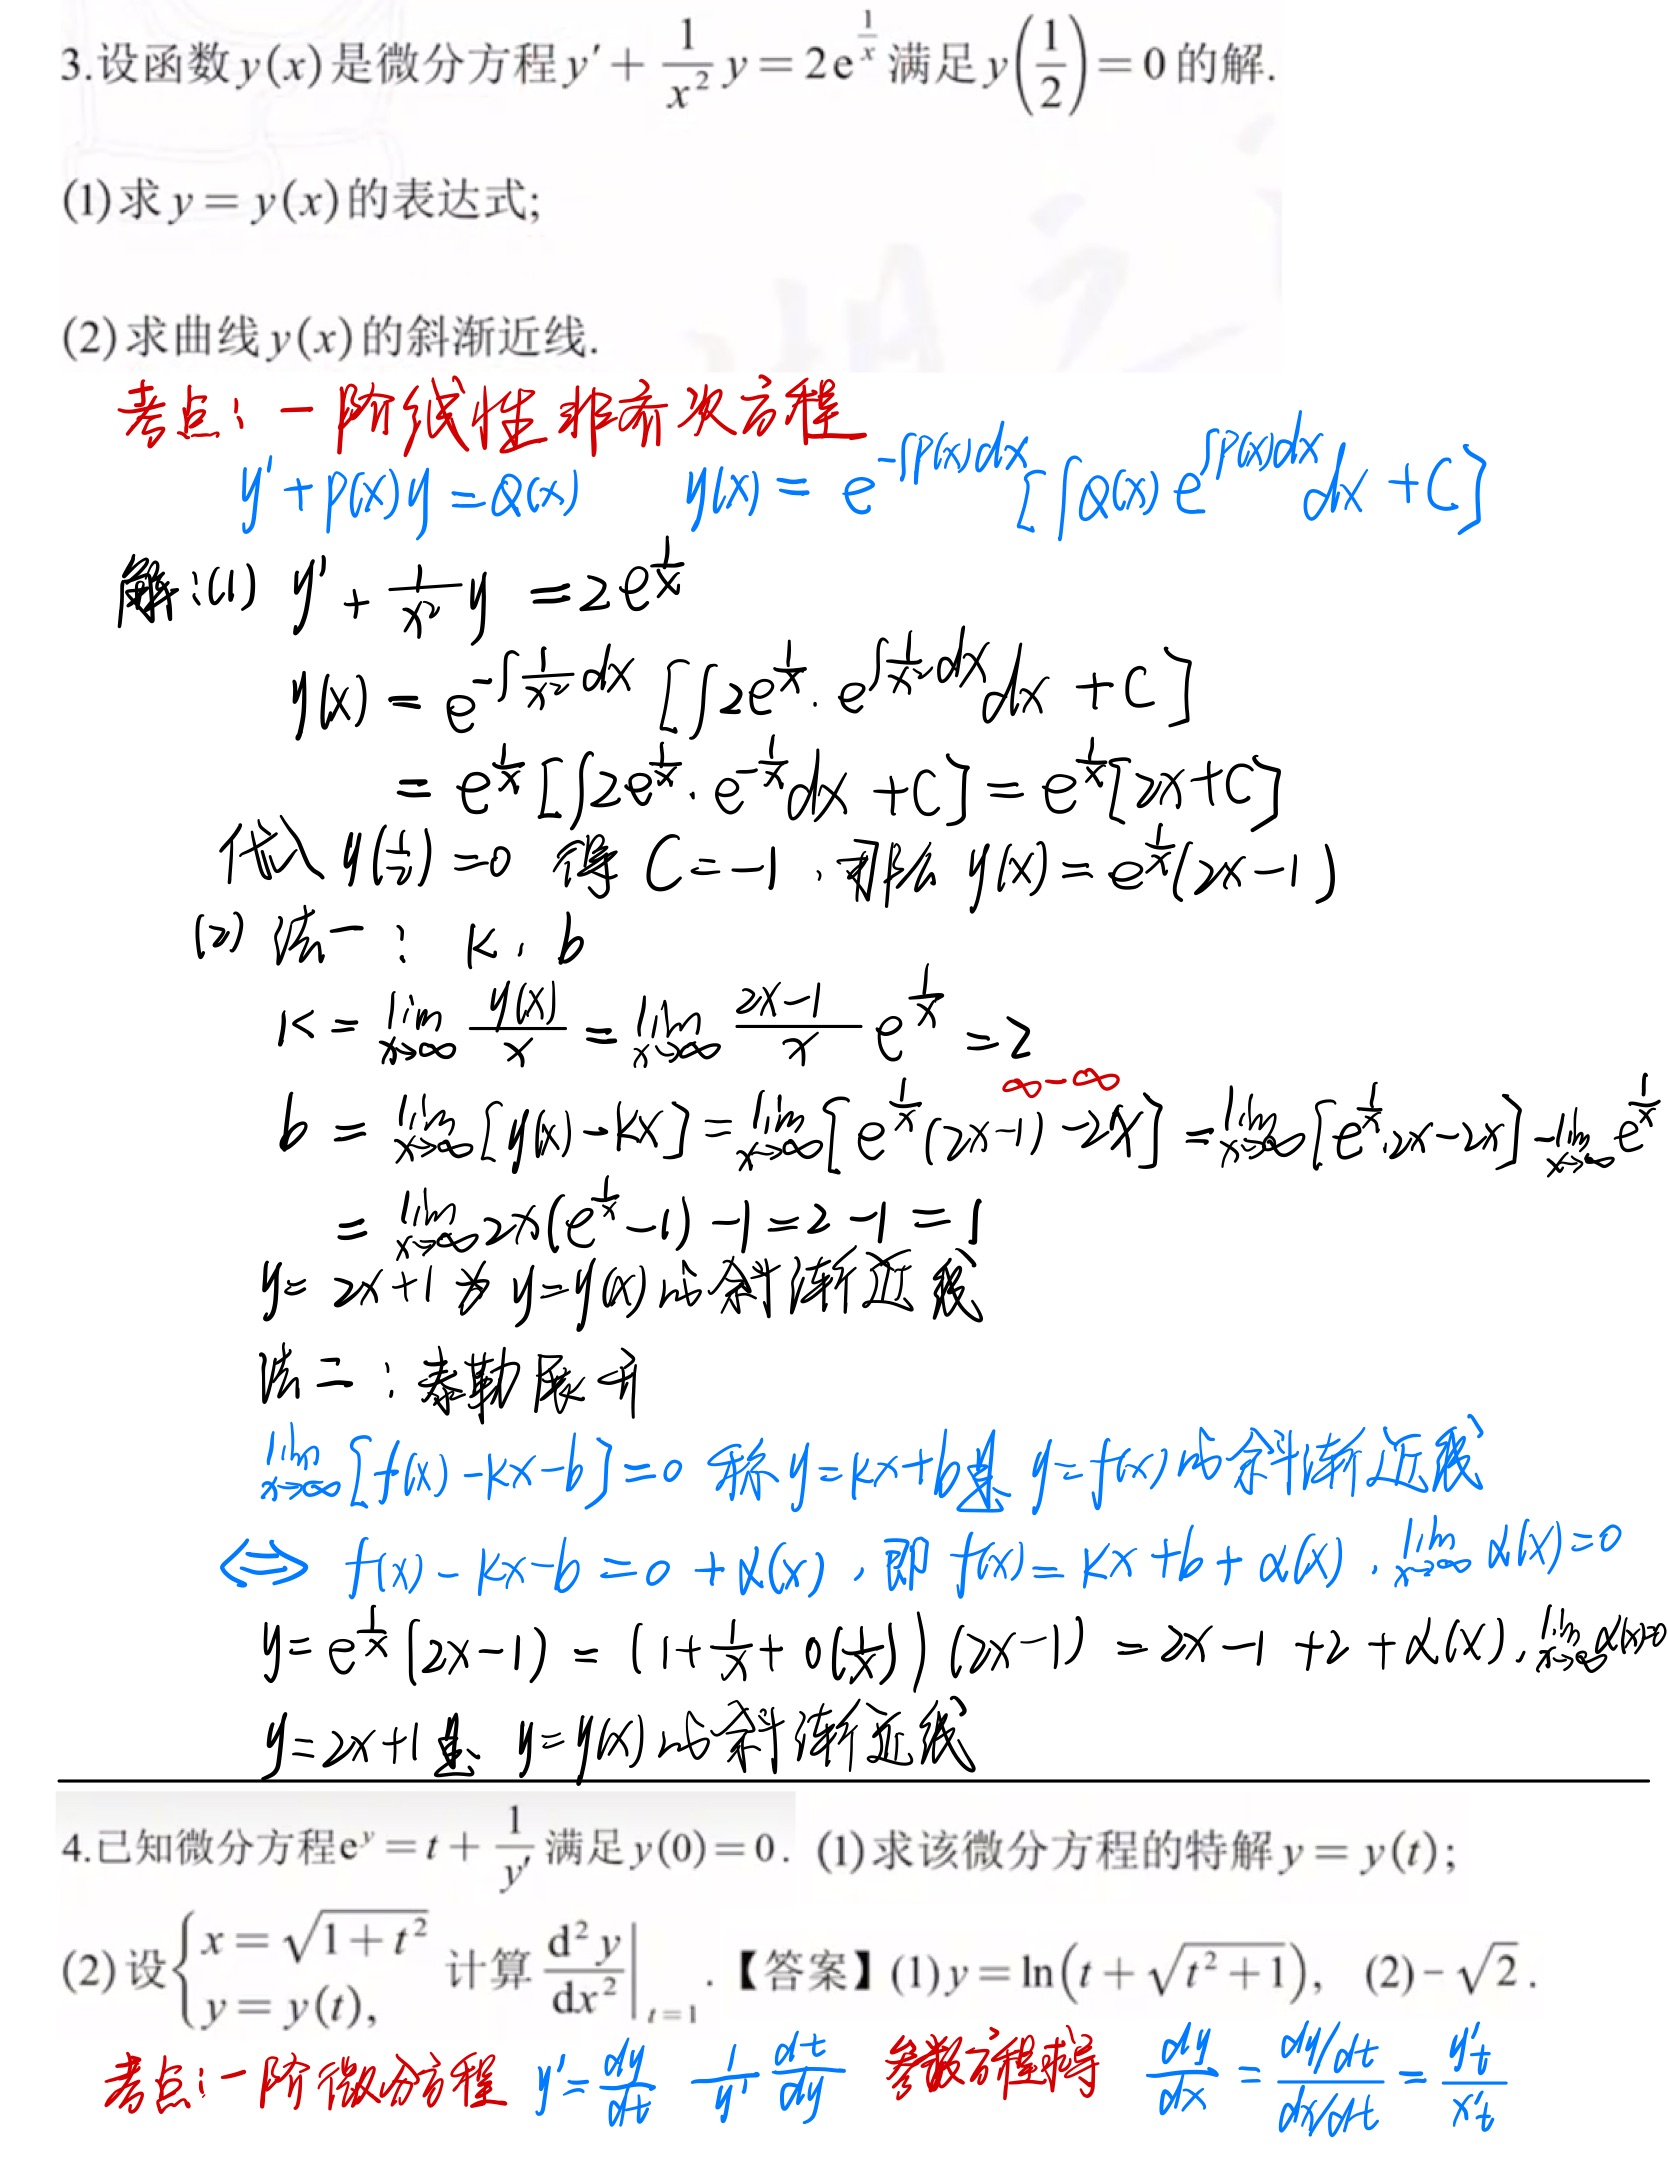 3.设函数y(x)是微分方程y′+\frac{1}{x²}y=2e^{\frac{1}{x}}满足y(\frac{1}{2})=0的解.
(1)求y=y(x)的表达式;
(2)求曲线y(x)的斜渐近线.
考点:一阶线性非齐次方程
y'+P(x)y=Q(x) y(x)=e^{-∫P(x)dx}[∫Q(x)e^{∫P(x)dx}dx+C]
解:(1) y'+\frac{1}{x²}y=2e^{\frac{1}{x}}
y(x)=e^{-∫\frac{1}{x²}dx}[∫2e^{\frac{1}{x}}·e^{∫\frac{1}{x²}dx}dx+C]
=e^{\frac{1}{x}}[∫2e^{\frac{1}{x}}·e^{-\frac{1}{x}}dx+C]=e^{\frac{1}{x}}[2x+C]
代入y(\frac{1}{2})=0 得 C=-1,那么 y(x)=e^{\frac{1}{x}}(2x-1)
(2) 法一: k, b
k=\lim_{x→∞}\frac{y(x)}{x}=\lim_{x→∞}\frac{2x-1}{x}e^{\frac{1}{x}}=2
∞-∞
b=\lim_{x→∞}[y(x)-kx]=\lim_{x→∞}[e^{\frac{1}{x}}(2x-1)-2x]=\lim_{x→∞}[e^{\frac{1}{x}}·2x-2x]-\lim_{x→∞}e^{\frac{1}{x}}
=\lim_{x→∞}2x(e^{\frac{1}{x}}-1)-1=2-1=1
y=2x+1为y=y(x)的斜渐近线
法二:泰勒展开
\lim_{x→∞}[f(x)-kx-b]=0 称y=kx+b是 y=f(x)的斜渐近线
⇔ f(x)-kx-b=0+α(x),即f(x)=kx+b+α(x), \lim_{x→∞}α(x)=0
y=e^{\frac{1}{x}}(2x-1)=(1+\frac{1}{x}+o(\frac{1}{x}))(2x-1)=2x-1+2+α(x), \lim_{x→∞}α(x)=0
y=2x+1是 y=y(x)的斜渐近线
4.已知微分方程e^y=t+\frac{1}{y′}满足y(0)=0. (1)求该微分方程的特解y=y(t);
(2)设{x=\sqrt{1+t²} y=y(t), 计算\frac{d²y}{dx²}|_{t=1}.【答案】(1)y=ln(t+\sqrt{t²+1}), (2)-\sqrt{2}.
考点:一阶微分方程 y'=\frac{dy}{dt} \frac{1}{y'}=\frac{dt}{dy} 参数方程求导 \frac{dy}{dx}=\frac{dy/dt}{dx/dt}=\frac{y'_t}{x'_t}